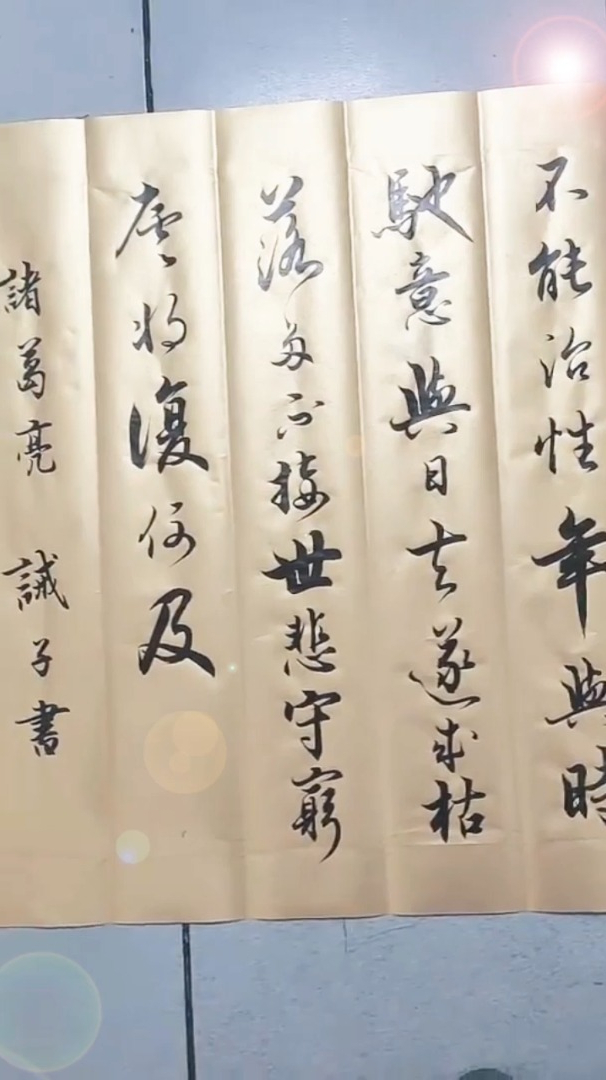 不能治性年與時
馳意與日去遂成枯
落多不接世悲守窮
廬將復何及
諸葛亮 誡子書